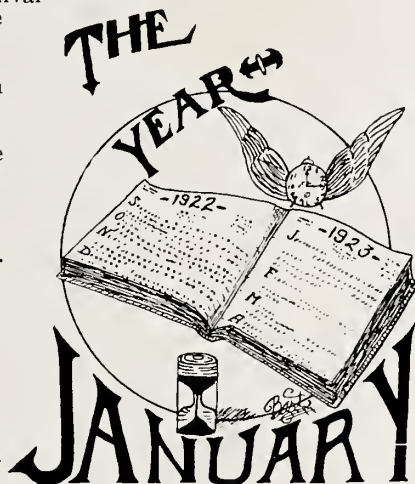 THE
YEAR
-1922-
S.
O.
N.
D.
-1923-
J.
F
M
A
JANUARY